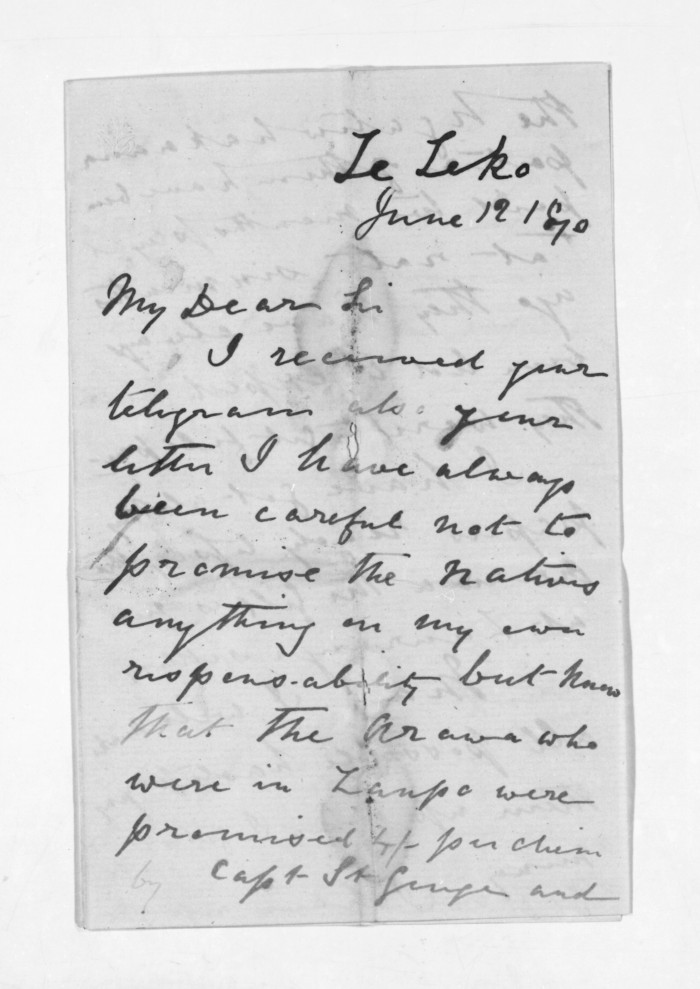 Te Teko
June 12 1870
My Dear Sir
I received your
telegram also your
letter I have always
been careful not to
promise the Natives
anything on my own
responsability but know
that the Arawa who
were in Taupo were
promised 4/- per diem
by Capt St George and